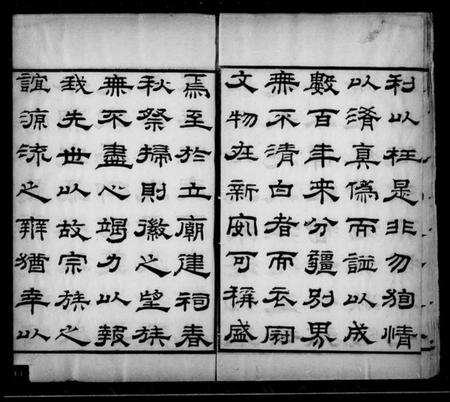 利以枉是非勿狥情
以淆真偽而諡以成
數百年来分疆別界
無不清白者而衣冠
文物在新安可稱盛
焉至於立廟建祠春
秋祭掃則徽之望族
無不盡心竭力以報
我先世以故宗族之
誼源流之辨猶幸以